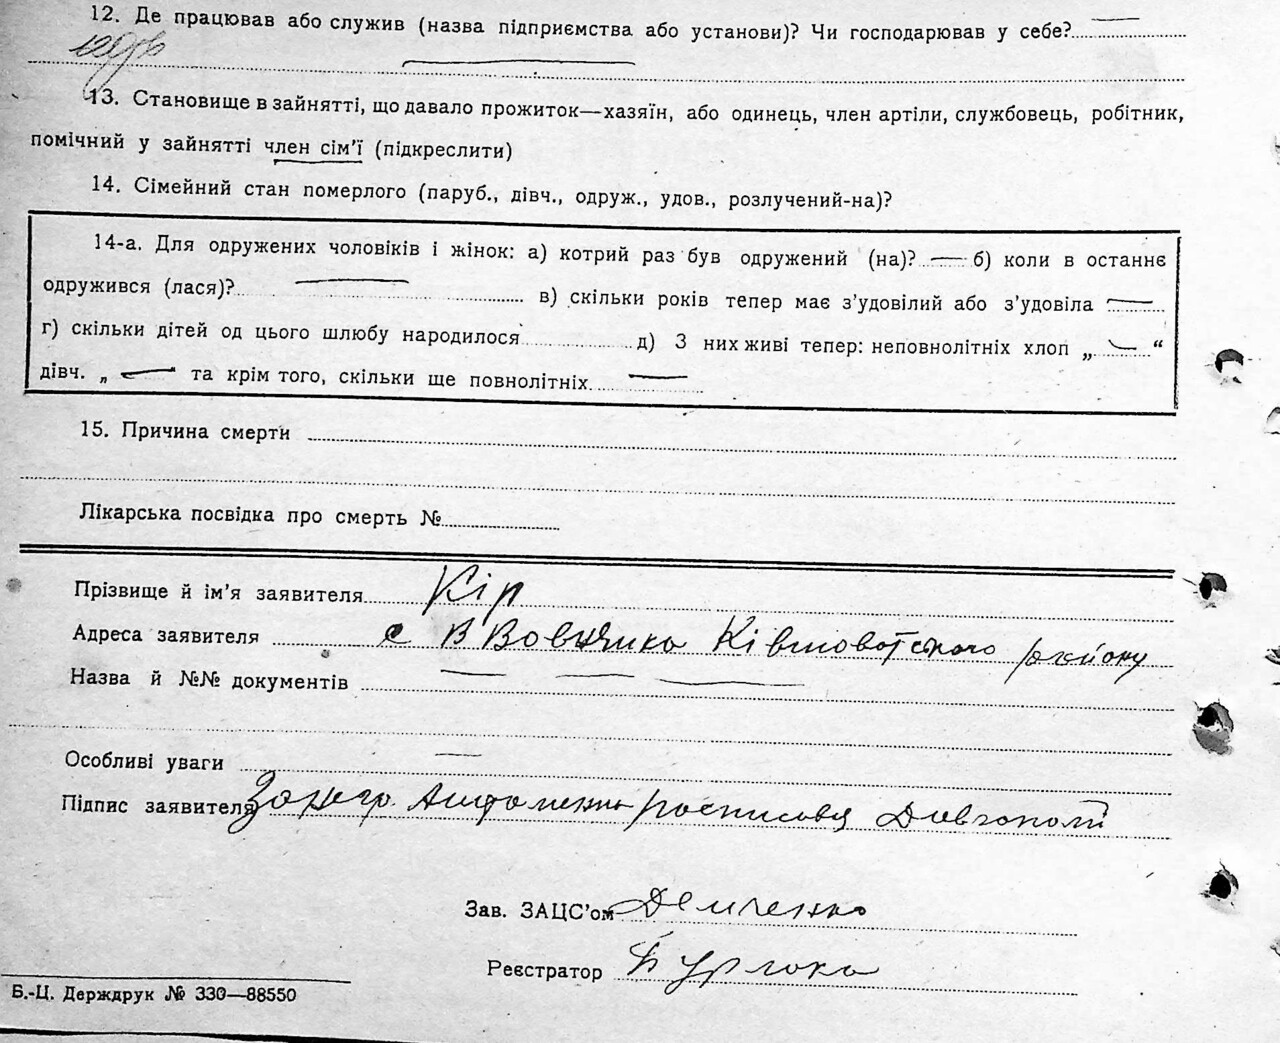 12. Де працював або служив (назва підприємства або установи)? Чи господарював у себе?
13. Становище в зайнятті, що давало прожиток—хазяїн, або одинець, член артіли, службовець, робітник,
помічний у зайнятті член сім'ї (підкреслити)
14. Сімейний стан померлого (паруб., дівч., одруж., удов., розлучений-на)?
14-а. Для одружених чоловіків і жінок: а) котрий раз був одружений (на)? — б) коли в останнє
одружився (лася)? — в) скільки років тепер має з'удовілий або з'удовіла —
г) скільки дітей од цього шлюбу народилося д) З них живі тепер: неповнолітніх хлоп „ — “
дівч. „ — “ та крім того, скільки ще повнолітніх —
15. Причина смерти
Лікарська посвідка про смерть №
Прізвище й ім'я заявителя Кір
Адреса заявителя с В Вовнянка Ківшоватського району
Назва й №№ документів — — —
Особливі уваги —
Підпис заявителя
Зав. ЗАЦС'ом Демченко
Реєстратор Бурлака
Б.-Ц. Держдрук № 330—88550